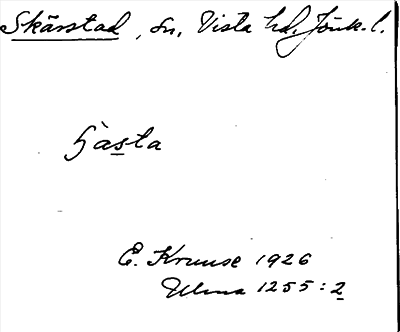 Skärstad, sn, Vista hd, Jönk. l.
hasta
E. Kruuse 1926
Ulma 1255:2